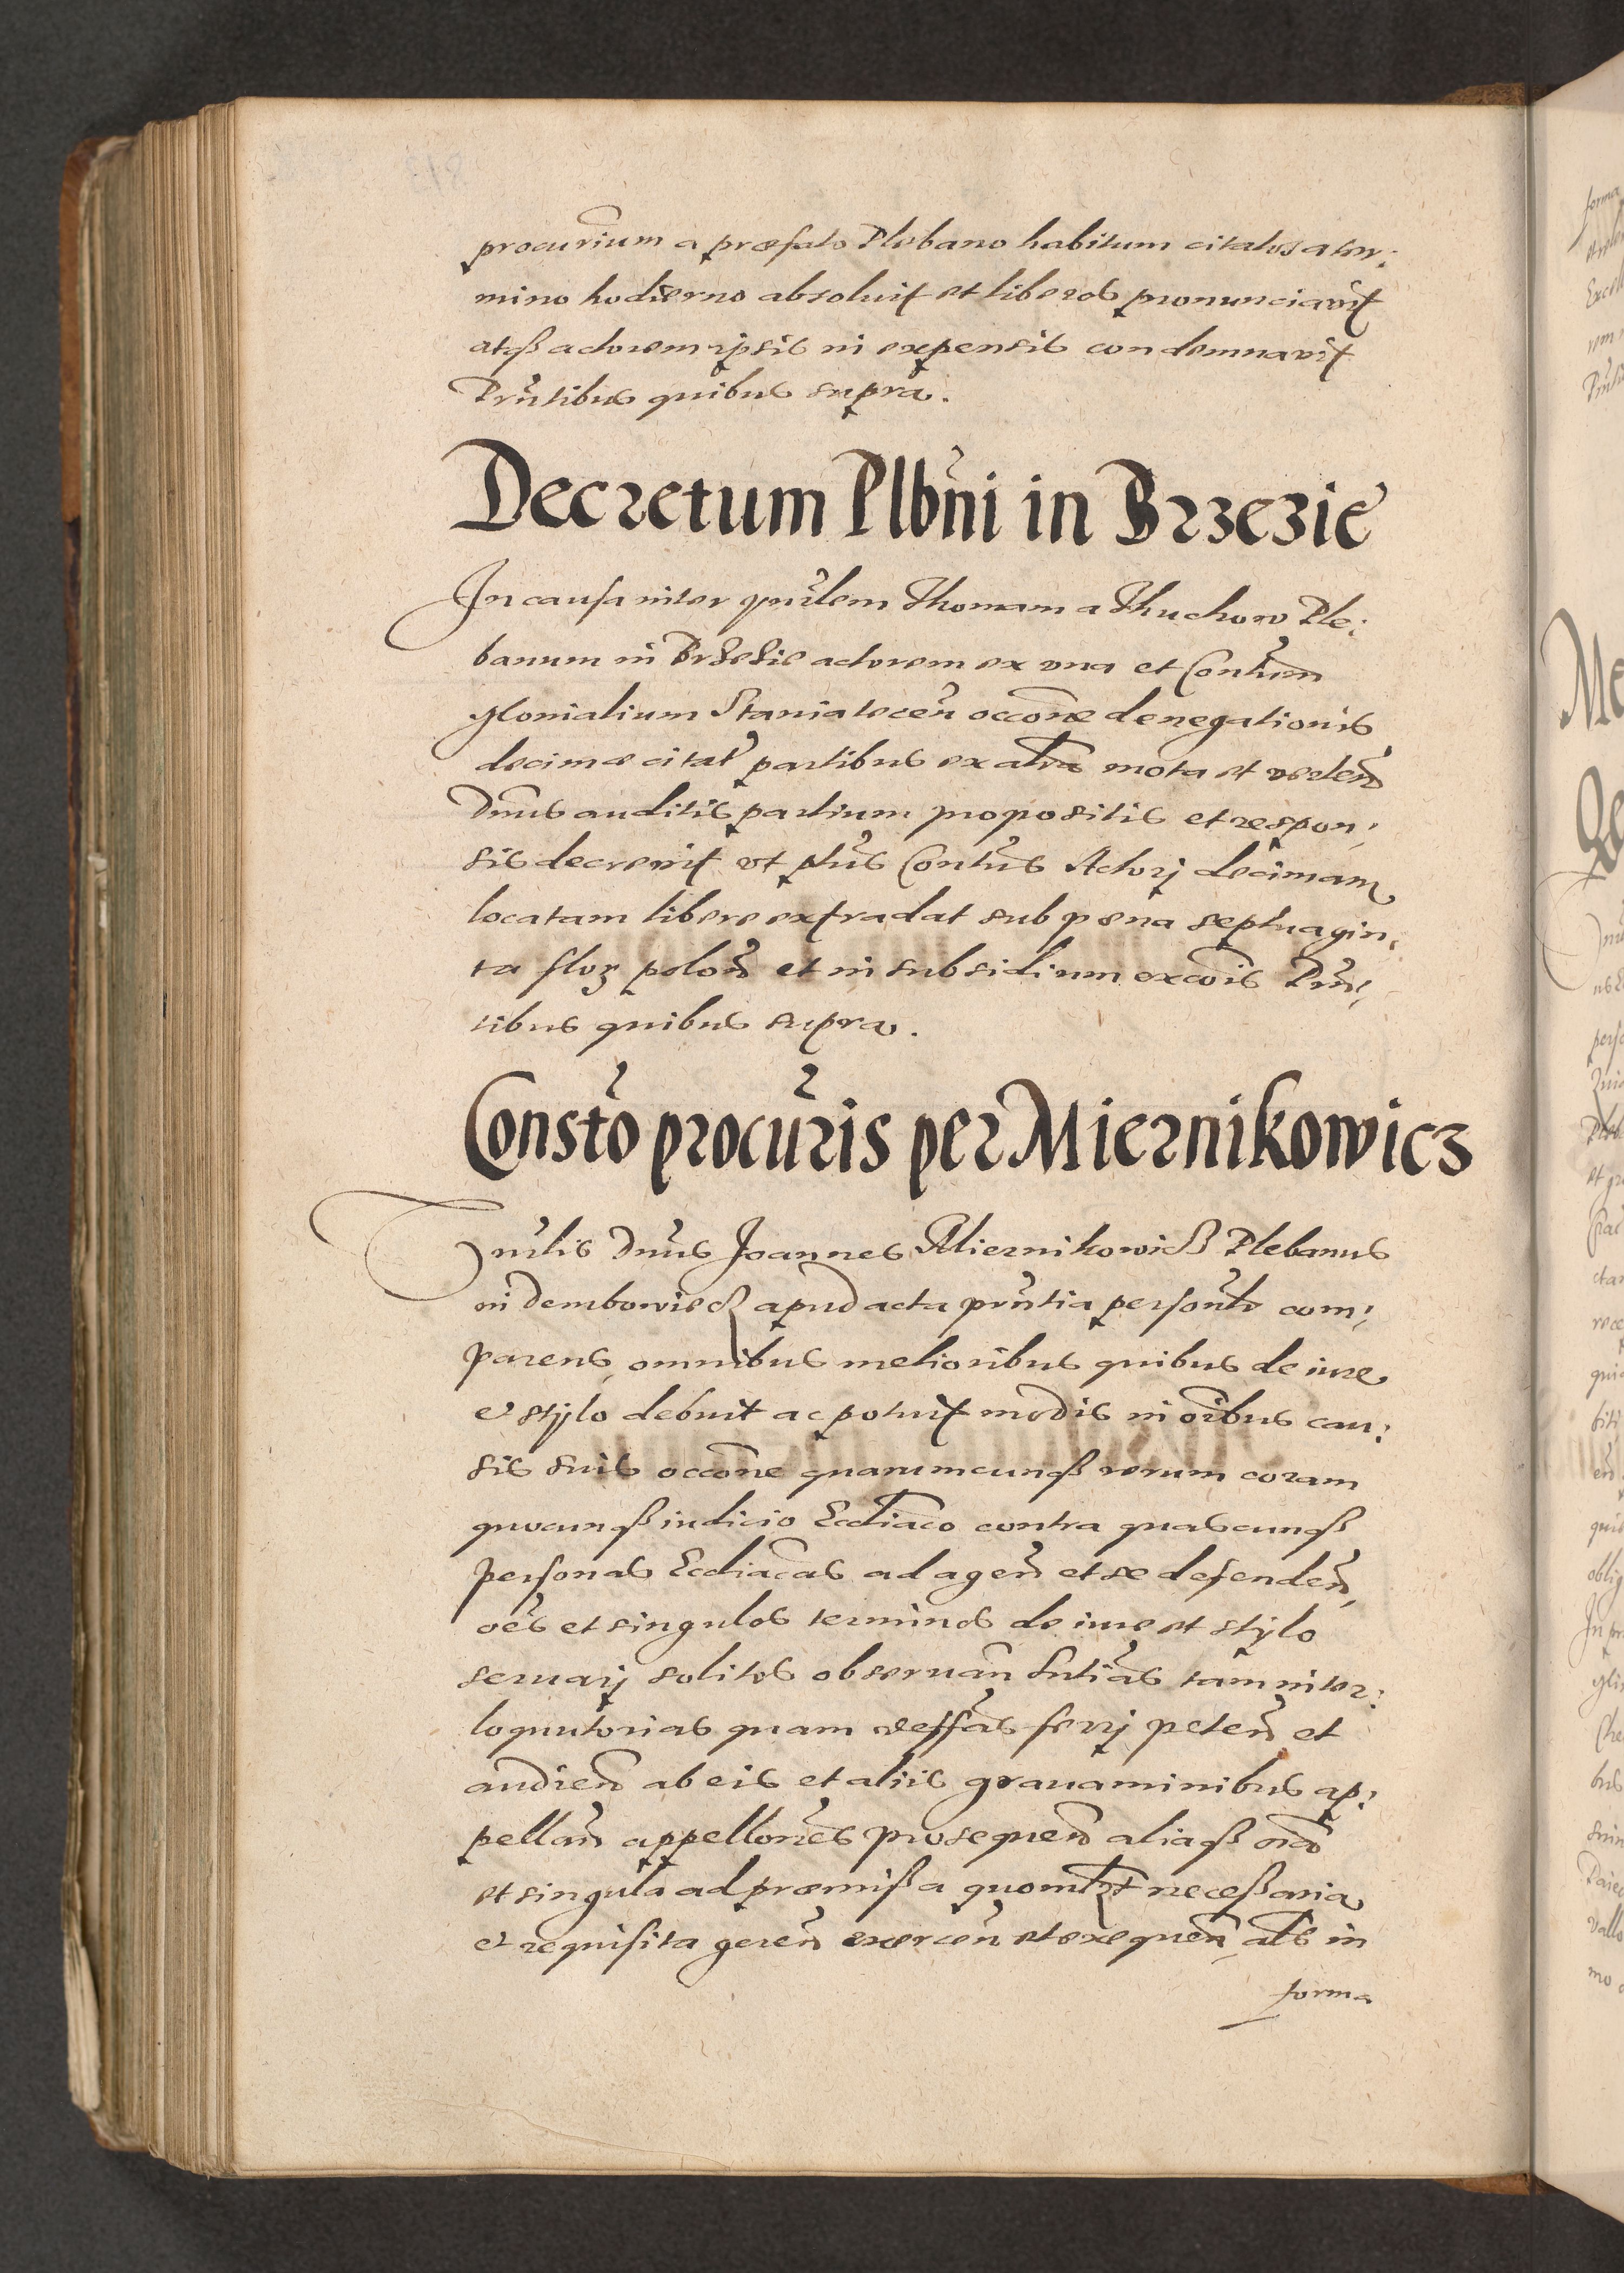 procurium a præfato Plebano habitum citatos a ter:
mino hodierno absoluit et liberos pronunciavit
atqß actorem ipsis in expensis condemnavit
Prntibus quibus supra.
Decretum Plbni in Brzezie
In causa inter gnrlem Thomam a Thuchow Ple:
banum in Brzezie actorem ex una et Contum
Monialium Staniatecen occone denegationis
decimæ citat partibus ex altra mota et verten
Dnus auditis partium propositis et respon:
sis decrevit ut ptus Contus Actorj decimam
locatam libere extradat sub pœna septuagin:
ta flor polon et in subsidium excois Prn:
tibus quibus supra.
Consto procuris per Miernikowicz
Gnrlis Dnus Joannes Miernikowicz Plebanus
in Dembowiecz apud acta prntia personlr com:
parens, omnibus melioribus quibus de iure
et stylo debuit ac potuit modis in oibus cau:
sis suis occone quarumcunqß rerum coram
quocunqß iudicio Eccliaco contra quascunqß
personas Eccliacas ad agen et se defenden,
oes et singulos terminos de iure et stylo
seruarj solitos obseruan sntias tam inter:
loquutorias quam deffas ferrj peten et
audien ab eis et aliis grauaminibus ap:
pellan appellones prosequen aliaqß oia
et singula ad præmißa quomlzt neceßaria
et requisita geren exercen et exequen, als in
forma